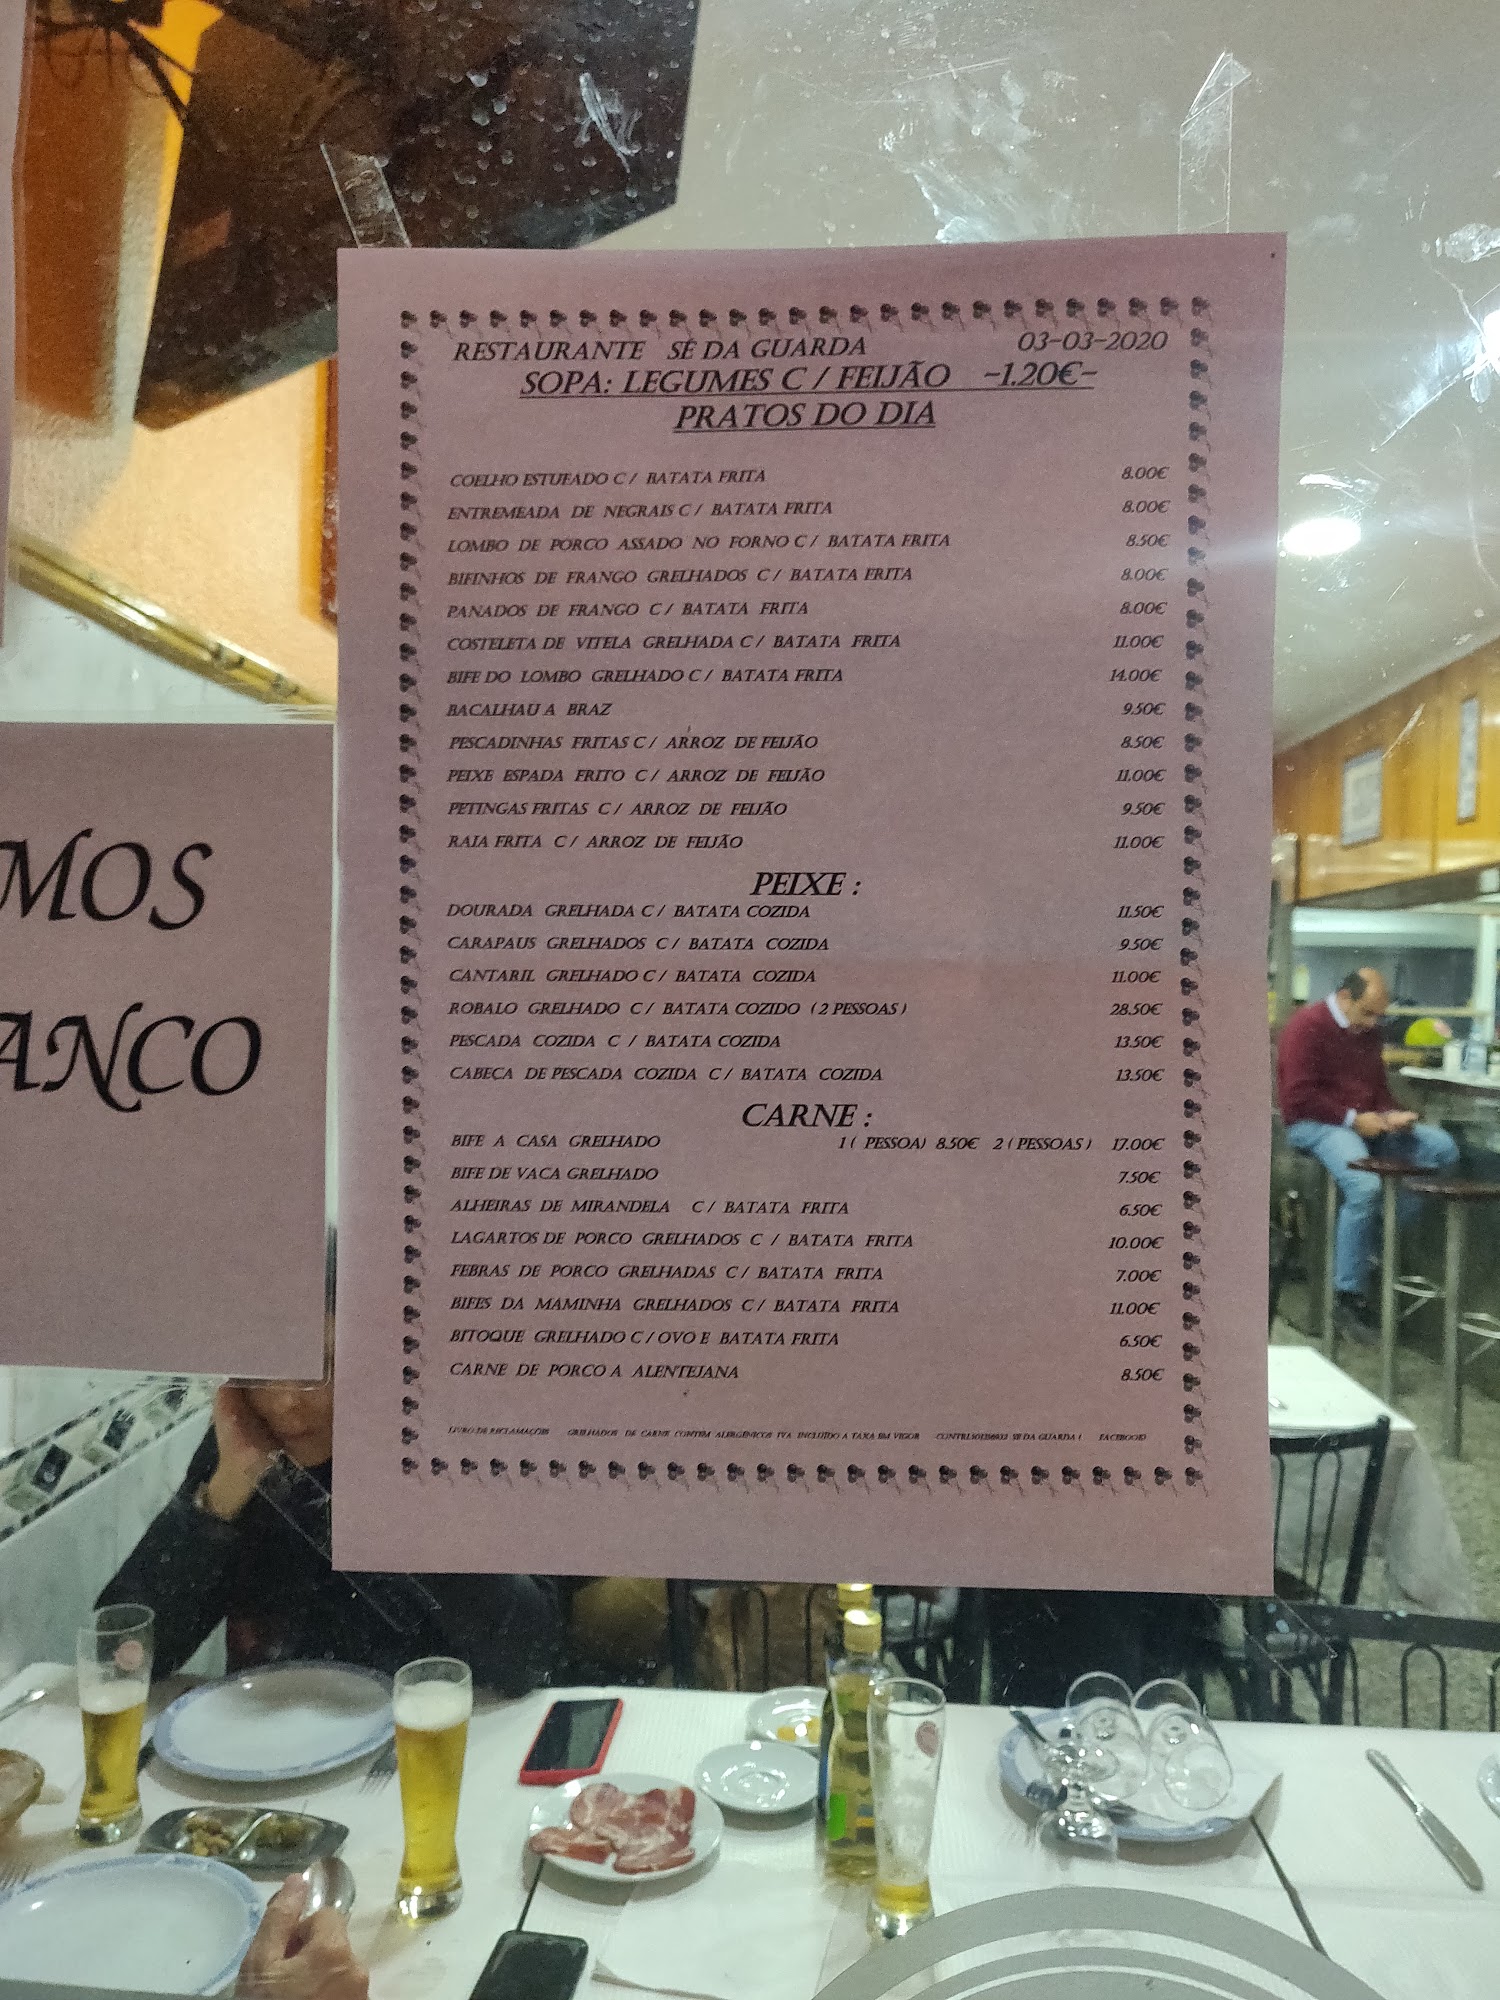 RESTAURANTE SÉ DA GUARDA 03-03-2020
SOPA: LEGUMES C / FEIJÃO -1.20€-
PRATOS DO DIA
COELHO ESTUFADO C / BATATA FRITA 8.00€
ENTREMEADA DE NEGRAIS C / BATATA FRITA 8.00€
LOMBO DE PORCO ASSADO NO FORNO C / BATATA FRITA 8.50€
BIFINHOS DE FRANGO GRELHADOS C / BATATA FRITA 8.00€
PANADOS DE FRANGO C / BATATA FRITA 8.00€
COSTELETA DE VITELA GRELHADA C / BATATA FRITA 11.00€
BIFE DO LOMBO GRELHADO C / BATATA FRITA 14.00€
BACALHAU A BRAZ 9.50€
PESCADINHAS FRITAS C / ARROZ DE FEIJÃO 8.50€
PEIXE ESPADA FRITO C / ARROZ DE FEIJÃO 11.00€
PETINGAS FRITAS C / ARROZ DE FEIJÃO 9.50€
RAIA FRITA C / ARROZ DE FEIJÃO 11.00€
PEIXE :
DOURADA GRELHADA C / BATATA COZIDA 11.50€
CARAPAUS GRELHADOS C / BATATA COZIDA 9.50€
CANTARIL GRELHADO C / BATATA COZIDA 11.00€
ROBALO GRELHADO C / BATATA COZIDO ( 2 PESSOAS ) 28.50€
PESCADA COZIDA C / BATATA COZIDA 13.50€
CABEÇA DE PESCADA COZIDA C / BATATA COZIDA 13.50€
CARNE :
BIFE A CASA GRELHADO 1 ( PESSOA) 8.50€ 2 ( PESSOAS ) 17.00€
BIFE DE VACA GRELHADO 7.50€
ALHEIRAS DE MIRANDELA C / BATATA FRITA 6.50€
LAGARTOS DE PORCO GRELHADOS C / BATATA FRITA 10.00€
FEBRAS DE PORCO GRELHADAS C / BATATA FRITA 7.00€
BIFES DA MAMINHA GRELHADOS C / BATATA FRITA 11.00€
BITOQUE GRELHADO C / OVO E BATATA FRITA 6.50€
CARNE DE PORCO A ALENTEJANA 8.50€
LIVRO DE RECLAMAÇÕES GRELHADOS DE CARNE CONTÉM ALERGENICOS IVA INCLUIDO A TAXA EM VIGOR SE DA GUARDA ! FACEBOOK!
MOS
ANCO